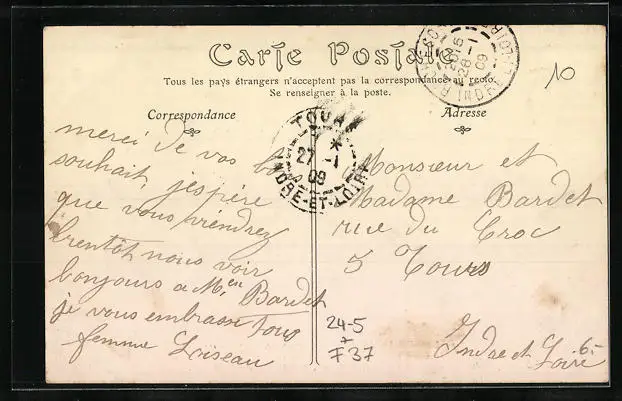 Carte Postale
Tous les pays étrangers n'acceptent pas la correspondance au recto.
Se renseigner à la poste.
Correspondance
merci de vos
souhait, j'espère
que vous viendrez
bientôt nous voir
bonjours a M. en Bardet
je vous embrasse tous
femme Loiseau
Adresse
Monsieur et
Madame Bardet
rue du Croc
5 Tours
Indre et Loire
TOURS
27 -1
09
INDRE-ET-LOIRE
28 -1
09
10
24-5
F37
6.-